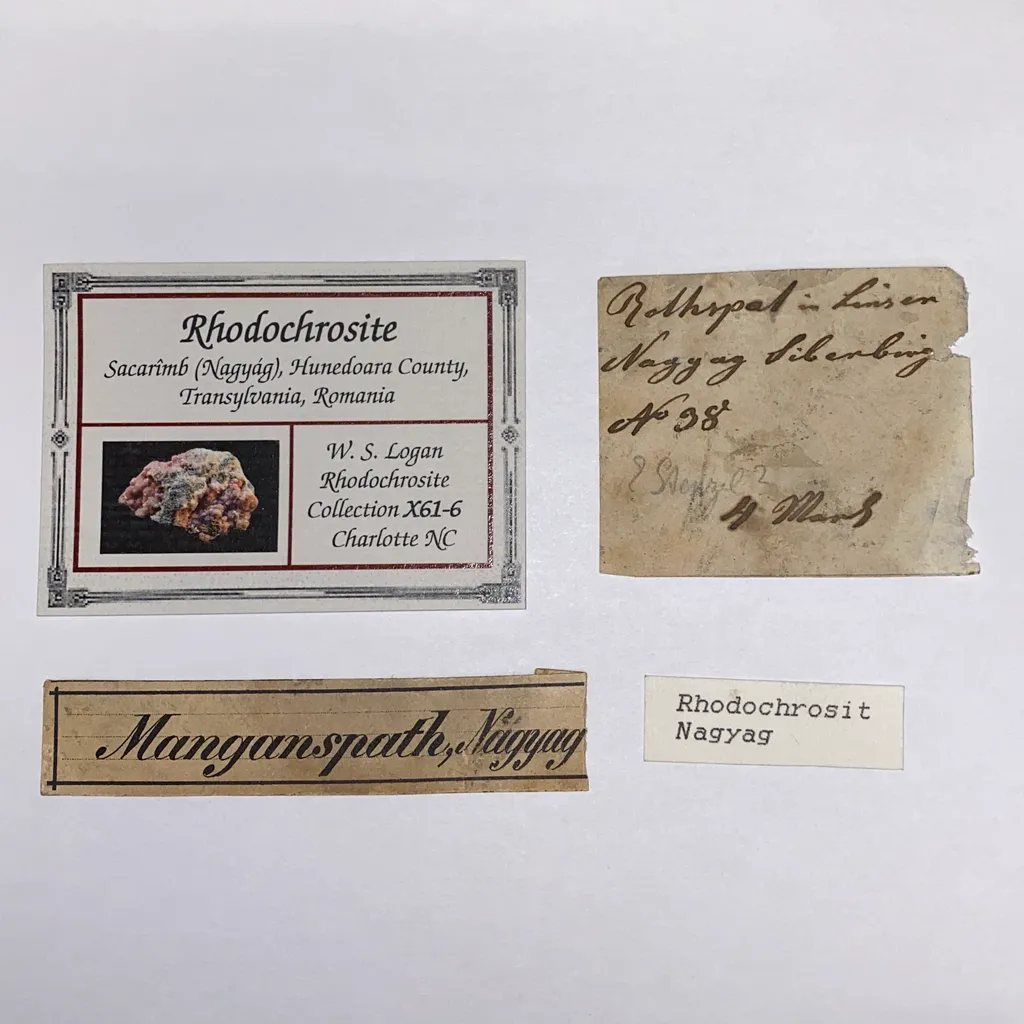 Rhodochrosite
Sacarîmb (Nagyág), Hunedoara County,
Transylvania, Romania
W. S. Logan
Rhodochrosite
Collection X61-6
Charlotte NC
Rothspat in Linsen
Nagyag Siberbirg
No 38
? Stenzel ?
4 Mark
Manganspath, Nágyag
Rhodochrosit
Nagyag